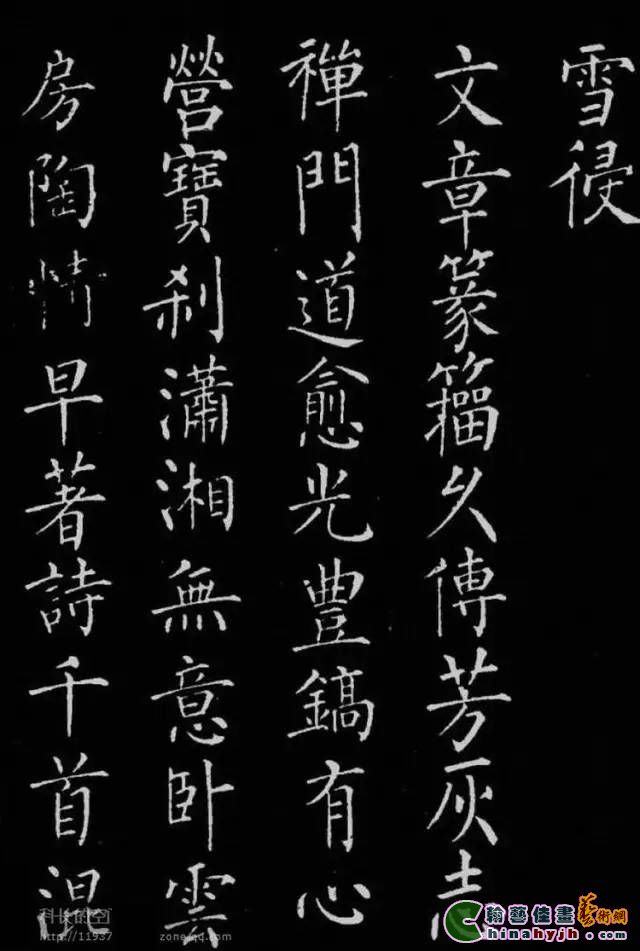 雪侵
文章篆籀久傳芳灰志
禪門道愈光豐鎬有心
營寶刹瀟湘無意卧雲
房陶情早著詩千首混
科长的空
http://11937 zone.qq.com
翰藝佳畫藝術網
Chinahyjh.com